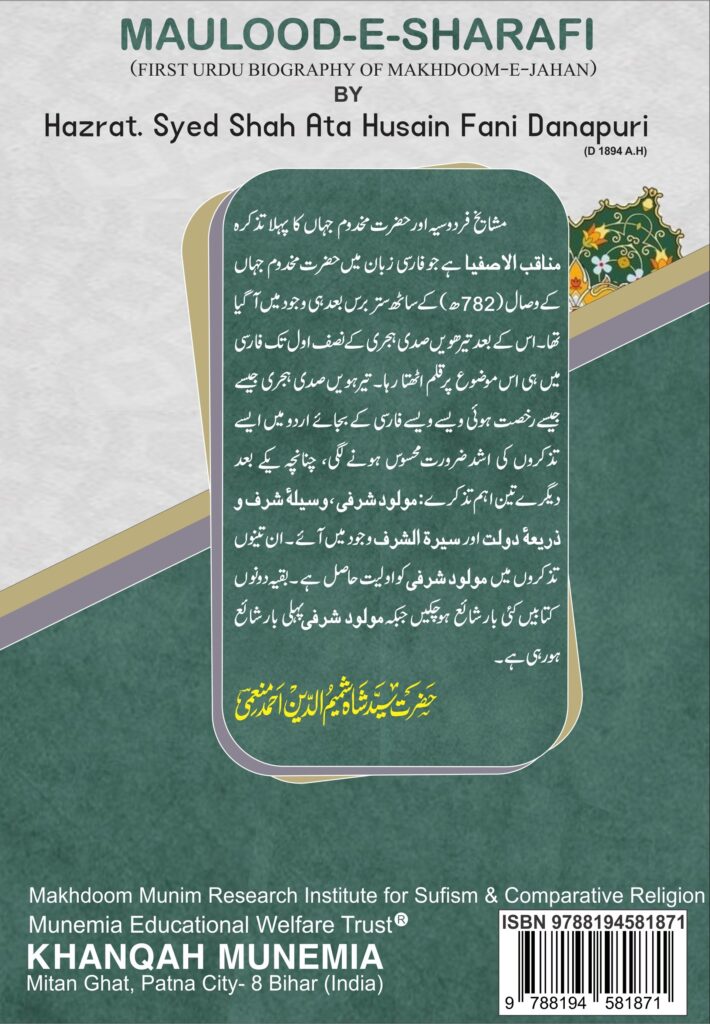 MAULOOD-E-SHARAFI
(FIRST URDU BIOGRAPHY OF MAKHDOOM-E-JAHAN)
BY
Hazrat. Syed Shah Ata Husain Fani Danapuri
(D 1894 A.H)
مشایخ فردوسیہ اور حضرت مخدوم جہاں کا پہلا تذکرہ
مناقب الاصفیا ہے جو فارسی زبان میں حضرت مخدوم جہاں
کے وصال (782ھ) کے ساٹھ ستر برس بعد ہی وجود میں آ گیا
تھا۔ اس کے بعد تیرھویں صدی ہجری کے نصف اول تک فارسی
میں ہی اس موضوع پر قلم اٹھتا رہا۔ تیرہویں صدی ہجری جیسے
جیسے رخصت ہوئی ویسے ویسے فارسی کے بجائے اردو میں ایسے
تذکروں کی اشد ضرورت محسوس ہونے لگی، چنانچہ یکے بعد
دیگرے تین اہم تذکرے: مولود شرفی، وسیلۂ شرف و
ذریعۂ دولت اور سیرۃ الشرف وجود میں آئے۔ ان تینوں
تذکروں میں مولود شرفی کو اولیت حاصل ہے۔ بقیہ دونوں
کتابیں کئی بار شائع ہو چکیں جبکہ مولود شرفی پہلی بار شائع
ہو رہی ہے۔
حضرت سید شاہ شمیم الدین احمد منعمی
Makhdoom Munim Research Institute for Sufism & Comparative Religion
Munemia Educational Welfare Trust®
KHANQAH MUNEMIA
Mitan Ghat, Patna City- 8 Bihar (India)
ISBN 9788194581871
9 788194 581871